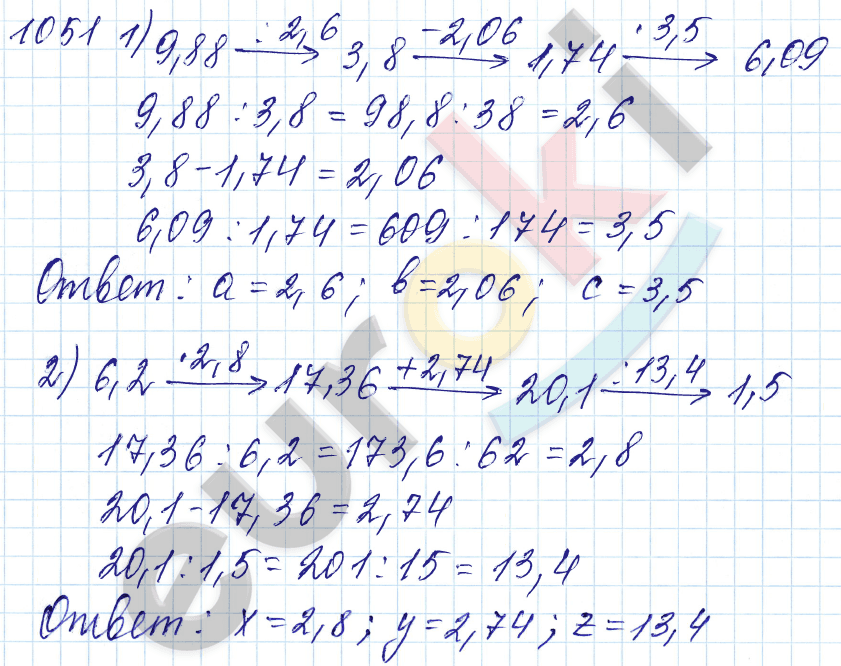 1051 1) 9,88 —: 2,6→ 3,8 —-2,06→ 1,74 —· 3,5→ 6,09
9,88 : 3,8 = 98,8 : 38 = 2,6
3,8 - 1,74 = 2,06
6,09 : 1,74 = 609 : 174 = 3,5
Ответ: a = 2,6; b = 2,06; c = 3,5
2) 6,2 —· 2,8→ 17,36 —+ 2,74→ 20,1 —: 13,4→ 1,5
17,36 : 6,2 = 173,6 : 62 = 2,8
20,1 - 17,36 = 2,74
20,1 : 1,5 = 201 : 15 = 13,4
Ответ: x = 2,8; y = 2,74; z = 13,4
euroki